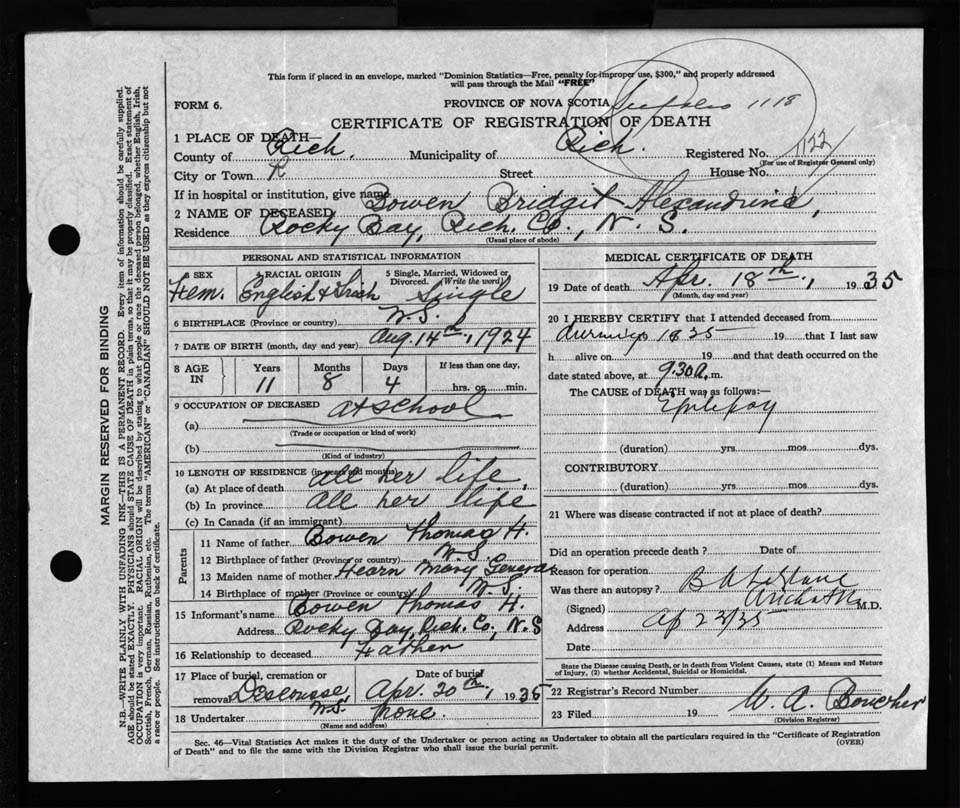 This form if placed in an envelope, marked "Dominion Statistics—Free, penalty for improper use, $300," and properly addressed
will pass through the Mail "FREE"
FORM 6.
PROVINCE OF NOVA SCOTIA 1118
CERTIFICATE OF REGISTRATION OF DEATH
1 PLACE OF DEATH—
County of Rich. Municipality of Rich. Registered No. 1122
(For use of Registrar General only)
City or Town R Street House No.
If in hospital or institution, give name
2 NAME OF DECEASED Bowen Bridgit Alexandrina,
Residence Rocky Bay, Rich. Co., N. S.
(Usual place of abode)
PERSONAL AND STATISTICAL INFORMATION
3 SEX Fem.
4 RACIAL ORIGIN English & Irish
5 Single, Married, Widowed or Divorced. (Write the word) Single
6 BIRTHPLACE (Province or country) N.S.
7 DATE OF BIRTH (month, day and year) Aug. 14th, 1924
8 AGE IN Years Months Days If less than one day,
11 8 4 hrs. or min.
9 OCCUPATION OF DECEASED at school
(a)
(Trade or occupation or kind of work)
(b)
(Kind of industry)
10 LENGTH OF RESIDENCE (in years and months)
(a) At place of death all her life,
(b) In province All her life
(c) In Canada (if an immigrant)
Parents
11 Name of father Bowen Thomas H.
12 Birthplace of father (Province or country) N.S.
13 Maiden name of mother Hearn Mary Geneva
14 Birthplace of mother (Province or country) N.S.
15 Informant's name Bowen Thomas H.
Address Rocky Bay, Rich. Co., N.S
16 Relationship to deceased Father
17 Place of burial, cremation or removal Descousse, N.S. Date of burial Apr. 20th, 1935
18 Undertaker None.
(Name and address)
MEDICAL CERTIFICATE OF DEATH
19 Date of death Apr. 18th, 1935
(Month, day and year)
20 I HEREBY CERTIFY that I attended deceased from
1835 19 that I last saw
h alive on 19 and that death occurred on the
date stated above, at 9.30 a. m.
The CAUSE OF DEATH was as follows:—
Epilepsy
(duration) yrs. mos. dys.
CONTRIBUTORY
(duration) yrs. mos. dys.
21 Where was disease contracted if not at place of death?
Did an operation precede death? Date of
Reason for operation
Was there an autopsy?
(Signed) B A LeBlanc M.D.
Arichat NS
Address Ap 23/35
Date
State the Disease causing Death, or in death from Violent Causes, state (1) Means and Nature
of Injury, (2) whether Accidental, Suicidal or Homicidal.
22 Registrar's Record Number
23 Filed 19 W. A. Boucher
(Division Registrar)
Sec. 46—Vital Statistics Act makes it the duty of the Undertaker or person acting as Undertaker to obtain all the particulars required in the "Certificate of Registration
of Death" and to file the same with the Division Registrar who shall issue the burial permit. (OVER)
MARGIN RESERVED FOR BINDING
N.B.—WRITE PLAINLY WITH UNFADING INK—THIS IS A PERMANENT RECORD. Every item of information should be carefully supplied.
AGE should be stated EXACTLY. PHYSICIANS should STATE CAUSE OF DEATH in plain terms, so that it may be properly classified. Exact statement of
OCCUPATION is very important. RACIAL ORIGIN will be described by stating to what people or race the deceased person belonged, whether English, Irish,
Scottish, French, German, Russian, Ruthenian, etc. The terms "AMERICAN" or "CANADIAN" SHOULD NOT BE USED as they express citizenship but not
a race or people. See instructions on back of certificate.